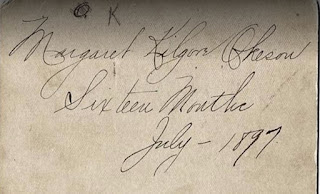 O K
Margaret Kilgore Okeson
Sixteen Months
July - 1897